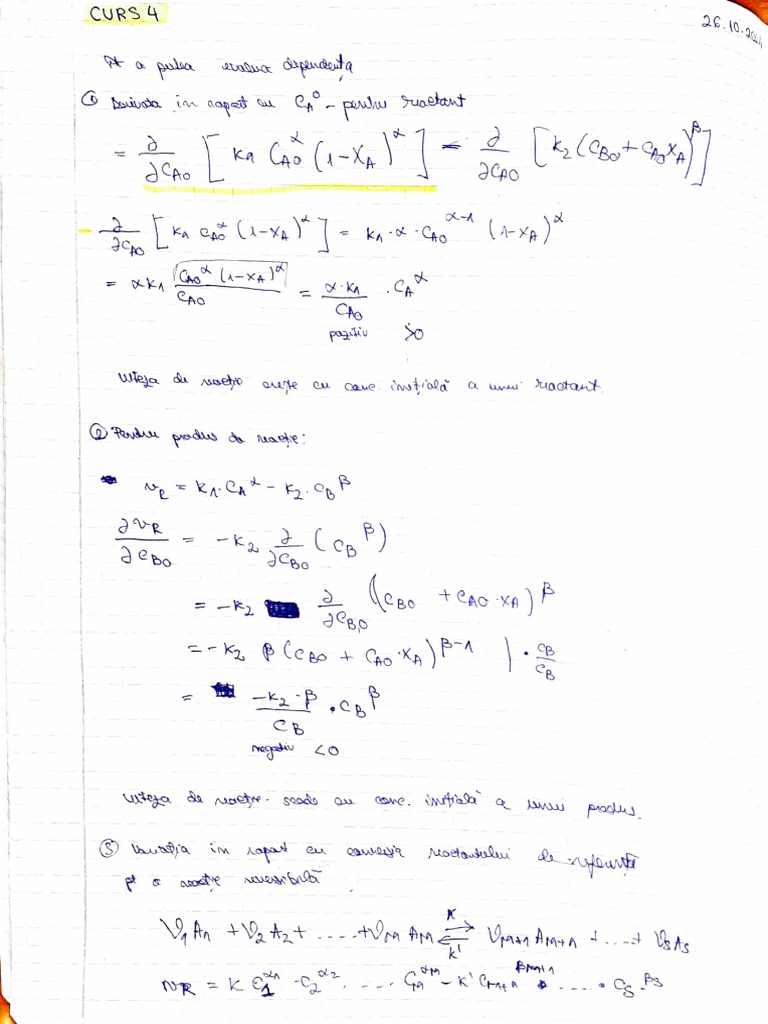 CURS 4
26.10.20
A putea evalua dependența
① Derivata în raport cu C_A^0 - pentru reactant
= ∂/∂C_A0 [k1 C_A0^α (1-X_A)^α] - ∂/∂C_A0 [k2 (C_B0 + C_A0 X_A)^β]
∂/∂C_A0 [k1 C_A0^α (1-X_A)^α] = k1·α·C_A0^α-1 (1-X_A)^α
= αk1 C_A0^α (1-X_A)^α / C_A0 = α·k1/C_A0 · C_A^α
pozitiv >0
Viteza de reacție crește cu conc. inițială a unui reactant.
② Pentru produs de reacție:
v_R = k1·C_A^α - k2·C_B^β
∂v_R/∂C_B0 = -k2 ∂/∂C_B0 (C_B^β)
= -k2 ∂/∂C_B,0 (C_B0 + C_A0·X_A)^β
= -k2 β (C_B0 + C_A0·X_A)^β-1 | · C_B/C_B
= -k2·β/C_B · C_B^β
negativ <0
Viteza de reacție scade cu conc. inițială a unui produs.
③ Variația în raport cu conversia reactantului de referință
pt o reacție reversibilă
ν1A1 + ν2A2 + ..... + νM AM ⇌ νM+1 AM+1 + ....+ νSAS
K
K'
v_R = K C1^α1 · C2^α2 ..... CM^αM - K' CM+1^βM+1 ..... · CS^βS